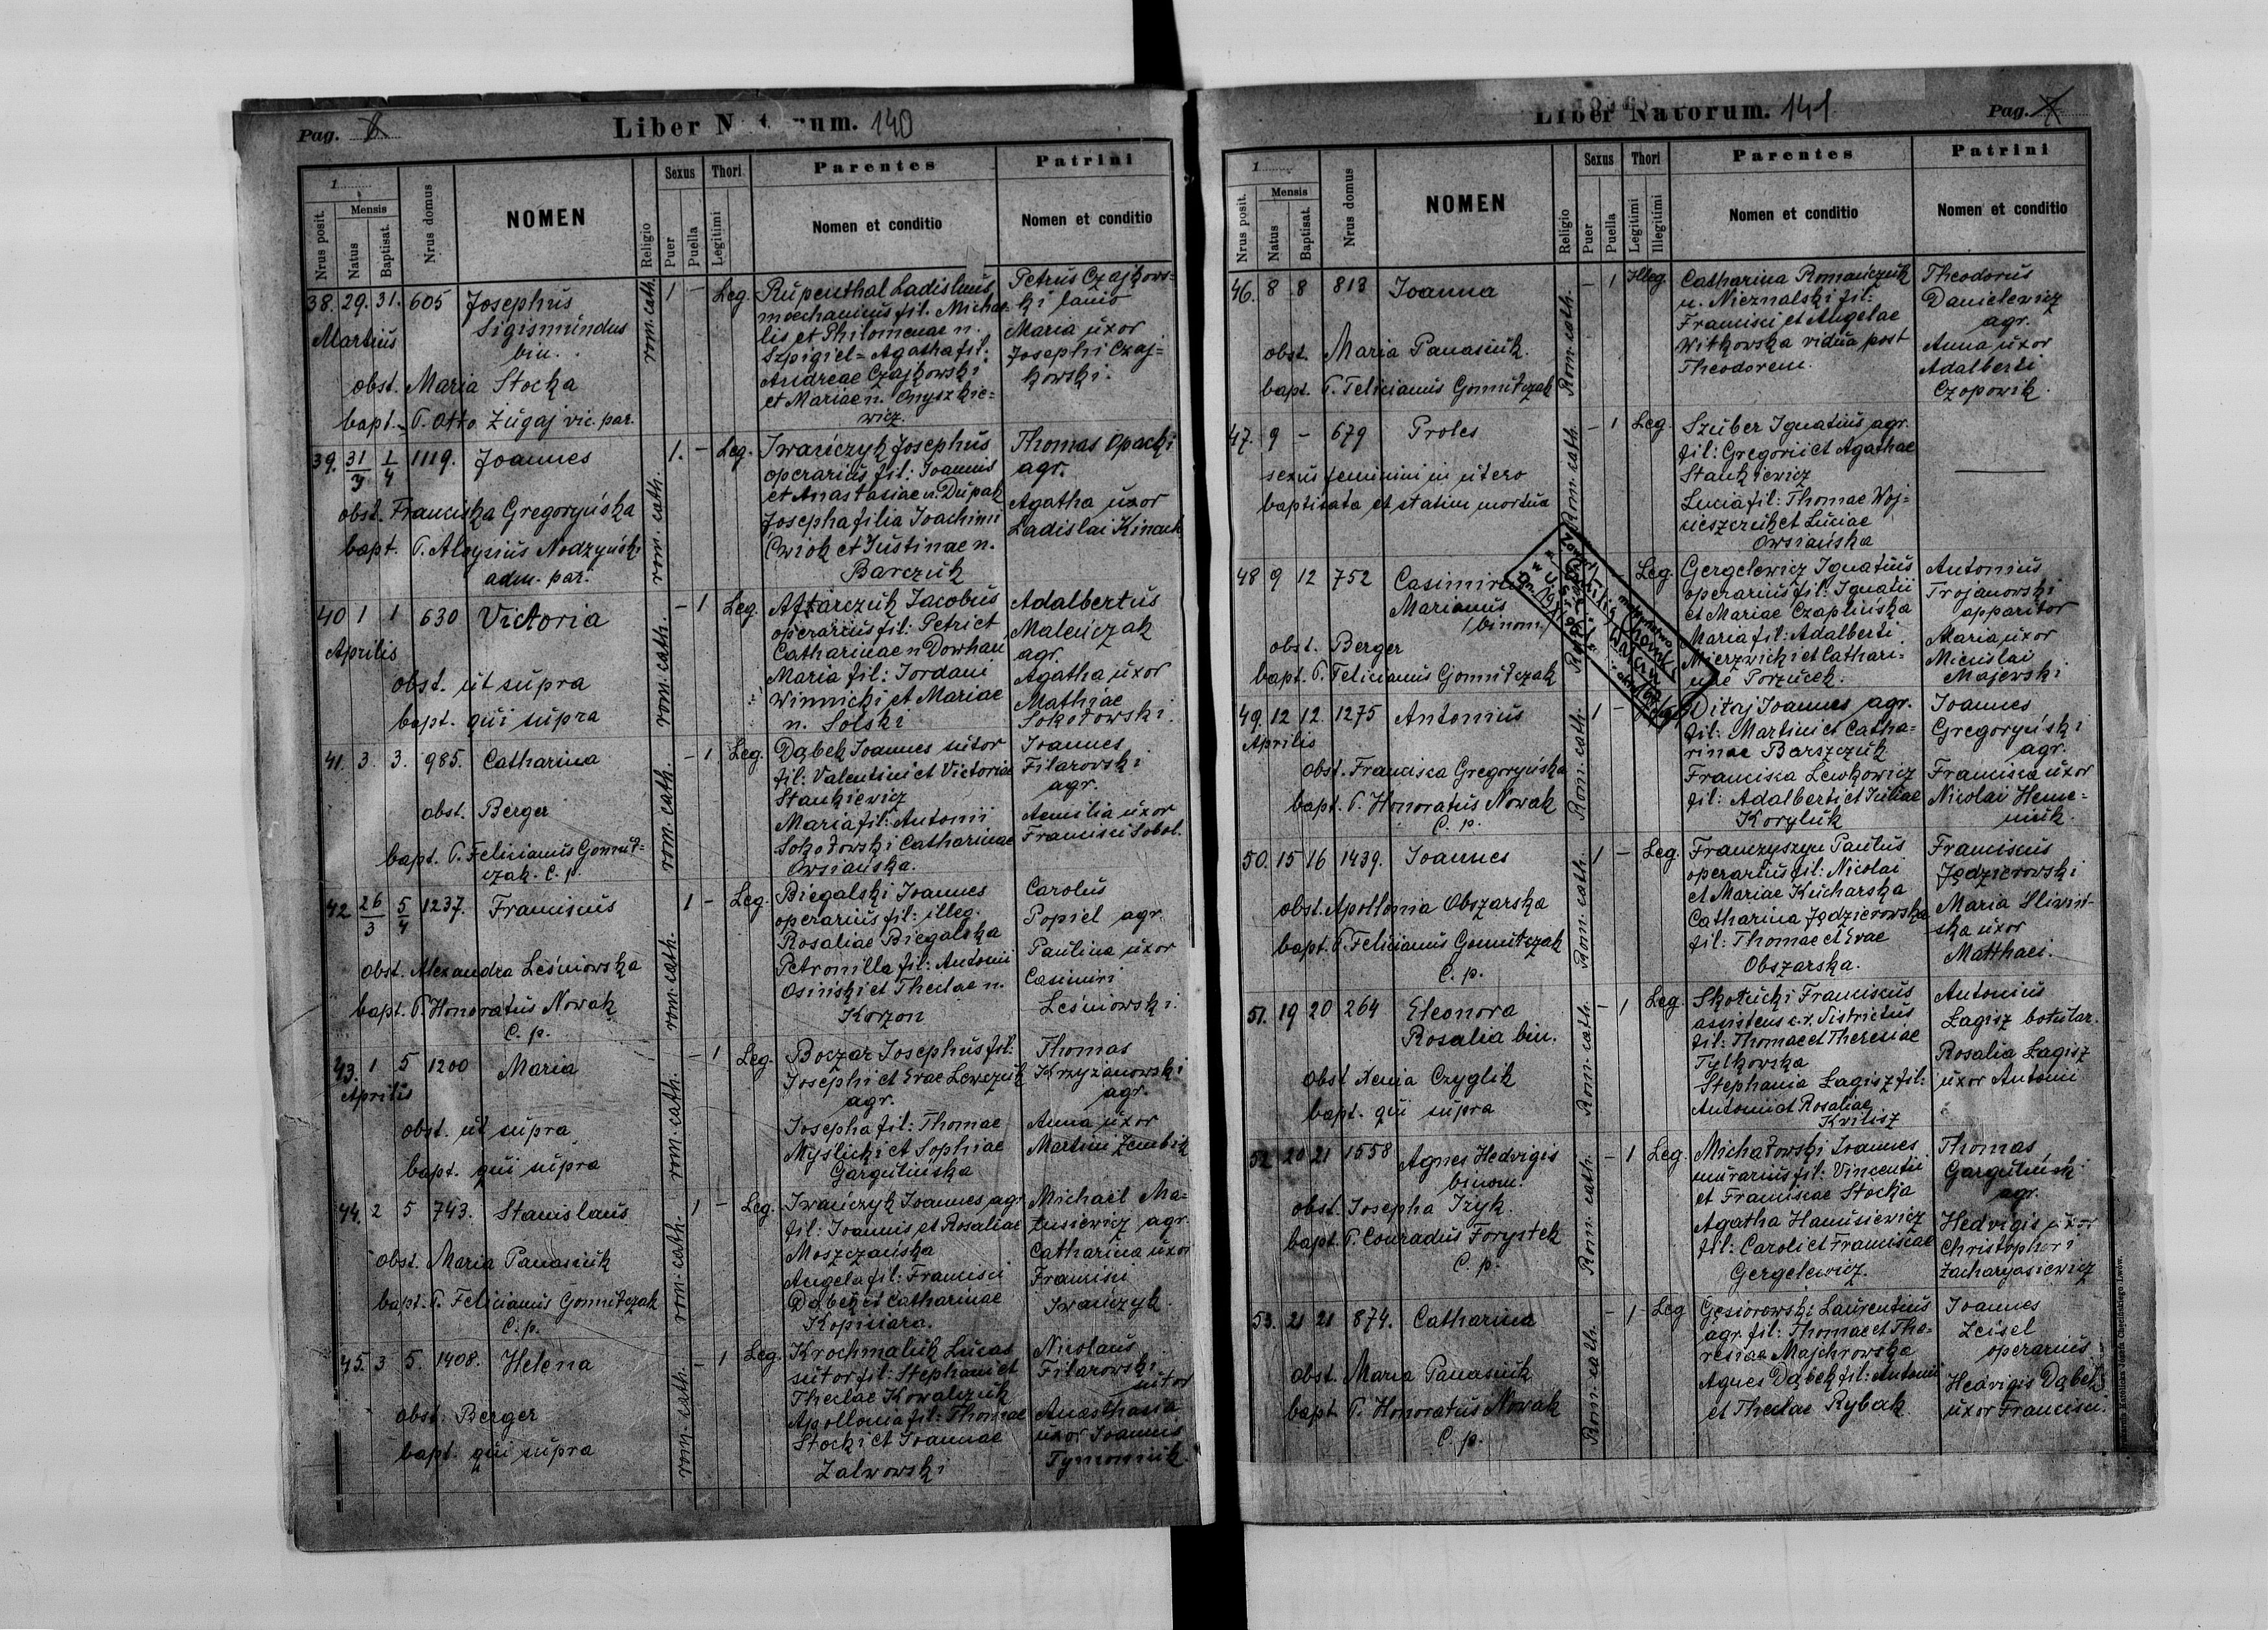 Pag. 6
Liber Natorum. 140
1
Nrus posit.
Mensis
Natus
Baptisat.
Nrus domus
NOMEN
Religio
Sexus
Puer
Puella
Thori
Legitimi
Parentes
Nomen et conditio
Patrini
Nomen et conditio
38. 29. 31. 605 Josephus rom. cath. 1 - Leg.
Martius
Sigismundus
bin.
obst. Maria Stocka
bapt. P. Otto Zugaj vic. par.
Rupenthal Ladislaus
mechanicus fil. Michae-
lis et Philomenae n.
Szpigiel = Agatha fil:
Andreae Czajkowski
et Mariae n. Onyszkie-
wicz.
Petrus Czajkows-
ki lanio
Maria uxor
Josephi Czaj-
kowski.
39. 31/3 1/4 1119. Joannes rom. cath. 1. - Leg.
obst. Franciska Gregoryńska
bapt. P. Aloysius Nodzyński
adm. par.
Iwańczyk Josephus
operarius fil: Joannis
et Anastasiae n. Dupak
Josepha filia Joachimi
Cwiok et Justinae n.
Barczuk
Thomas Opacki
agr.
Agatha uxor
Ladislai Kinach
40 1 1 630 Victoria rom. cath. - 1 Leg.
Aprilis
obst. ut supra
bapt. qui supra
Aftarczuk Jacobus
operarius fil: Petri et
Catharinae n Dowhan
Maria fil: Jordani
Winnicki et Mariae
n. Solski
Adalbertus
Maleńczak
agr.
Agatha uxor
Mathiae
Sokołowski.
41. 3. 3. 985. Catharina rom. cath. - 1. Leg.
obst. Berger
bapt. P. Felicianus Gomuł-
czak. C. p.
Dąbek Joannes sutor
fil: Valentini et Victoriae
Stankiewicz
Maria fil: Antonii
Sokołowski Catharinae
Owsiańska.
Joannes
Filarovski
agr.
Aemilia uxor
Francisci Sobol.
42 26/3 5/4 1237. Franciscus rom. cath. 1 - Leg.
obst. Alexandra Leśniowska
bapt. P. Honoratus Nowak
C. p.
Biegalski Joannes
operarius fil: illeg.
Rosaliae Biegalska
Petronilla fil: Antonii
Osiński et Theclae n.
Korzon
Carolus
Popiel agr.
Paulina uxor
Casimiri
Leśniowski.
43. 1 5 1200 Maria rom. cath. - 1 Leg.
Aprilis
obst. ut supra
bapt. qui supra
Boczar Josephus fil:
Josephi et Evae Lewczuk
agr.
Josepha fil: Thomae
Myślicki et Sophiae
Gargulińska
Thomas
Krzyżanowski
agr.
Anna uxor
Martini Zembik
44. 2 5 743. Stanislaus rom. cath. 1 - Leg.
obst. Maria Panasiuk
bapt. P. Felicianus Gomułczak
C. p.
Iwańczyk Joannes agr
fil: Joannis et Rosaliae
Moszczańska
Angela fil: Francisci
Dąbek et Catharinae
Kopiciara.
Michael Ma-
tusiewicz agr.
Catharina uxor
Francisci
Iwańczyk.
45. 3 5. 1408. Helena rom. cath. - 1 Leg.
obst. Berger
bapt. qui supra
Krochmaluk Lucas
sutor fil: Stephani et
Theclae Kowalczuk
Apollonia fil: Thomae
Stocki et Joannae
Zalworski
Nicolaus
Filarowski
sutor
Anasthasia
uxor Joannis
Tymoniuk.
Liber Natorum. 141
Pag. 7
1
Nrus posit.
Mensis
Natus
Baptisat.
Nrus domus
NOMEN
Religio
Sexus
Puer
Puella
Thori
Legitimi
Illegitimi
Parentes
Nomen et conditio
Patrini
Nomen et conditio
46. 8 8 813 Joanna Rom. cath. - 1 Illeg.
obst. Maria Panasiuk.
bapt. P. Felicianus Gomułczak
Catharina Romańczuk
n. Nieznalski fil:
Francisci et Angelae
Witkowska vidua post
Theodorem.
Theodorus
Danielewicz
agr.
Anna uxor
Adalberti
Czopowik.
47. 9 - 679 Proles Rom. cath. - 1 Leg.
sexus feminini in utero
baptisata et statim mortua
Szuber Ignatius agr.
fil: Gregorii et Agathae
Stankiewicz
Lucia fil: Thomae Woj-
cieszczuk et Luciae
Owsiańska
48 9 12 752 Casimirus Leg.
Marianus
binom.
obst. Berger
bapt. P. Felicianus Gomułczak
Gergelewicz Ignatius
operarius fil: Ignatii
et Mariae Czaplińska
Maria fil: Adalberti
Mierzwicki et Cathari-
nae Porzucek.
Antonius
Trojanowski
apparitor
Maria uxor
Micislai
Majewski
49. 12 12. 1275 Antonius Rom. cath. 1 -
Aprilis
obst. Francisca Gregoryńska
bapt. P. Honoratus Nowak
C. p.
Ditaj Joannes agr.
fil: Martini et Catha-
rinae Barszczuk
Francisca Lewkowicz
fil: Adalberti et Juliae
Koryluk
Joannes
Gregoryński
agr.
Francisca uxor
Nicolai Heme-
niuk.
50. 15 16 1439. Joannes Rom. cath. 1 - Leg.
obst. Apollonia Obszarska
bapt. P. Felicianus Gomułczak
C. p.
Franczyszyn Paulus
operarius fil: Nicolai
et Mariae Kucharska
Catharina Jędzierowska
fil: Thomae et Evae
Obszarska.
Franciscus
Jędzierowski
Maria Sliwiń-
ska uxor
Matthaei.
51. 19 20 264 Eleonora Rom. cath. - 1 Leg.
Rosalia bin.
obst Xenia Czyglik
bapt. qui supra
Skołucki Franciscus
assistens c. r. districtus
fil: Thomae et Theresiae
Tylkowska
Stephania Łagisz fil:
Antonii et Rosaliae
Krilisz
Antonius
Łagisz botular.
Rosalia Łagisz
uxor Antonii
52 20 21 1558 Agnes Hedvigis Rom. cath. - 1 Leg.
binom.
obst. Josepha Iżyk.
bapt. P. Conradus Forystek
C. p.
Michałowski Joannes
murarius fil: Vincentii
et Franciscae Stocka
Agatha Hanusiewicz
fil: Caroli et Franciscae
Gergelewicz.
Thomas
Garguliński
agr.
Hedvigis uxor
Christophori
Zacharyasiewicz
53. 21 21 874. Catharina Rom. cath. - 1 - Leg
obst. Maria Panasiuk
bapt. P. Honoratus Nowak
C. p.
Gęsiorowski Laurentius
agr. fil: Thomae et The-
resiae Majchrowska
Agnes Dąbek fil: Antonii
et Theclae Rybak
Joannes
Zeisel
operarius
Hedvigis Dąbek
uxor Francisci.